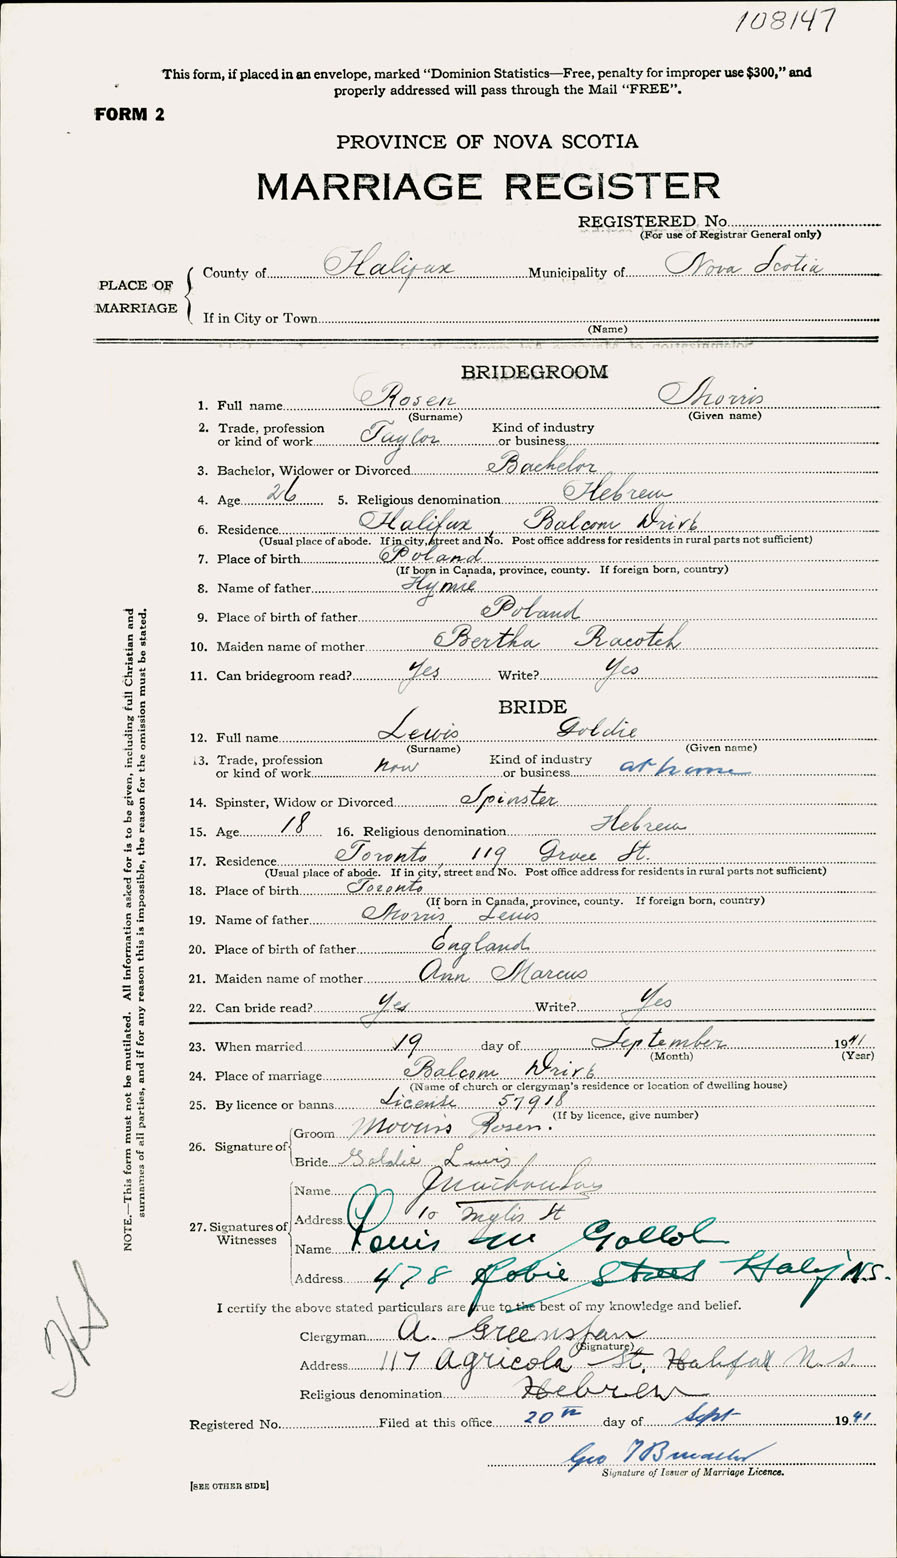 108147
This form, if placed in an envelope, marked “Dominion Statistics—Free, penalty for improper use $300,” and
properly addressed will pass through the Mail “FREE”.
FORM 2
PROVINCE OF NOVA SCOTIA
MARRIAGE REGISTER
REGISTERED No.
(For use of Registrar General only)
PLACE OF MARRIAGE
County of Halifax Municipality of Nova Scotia
If in City or Town
(Name)
BRIDEGROOM
1. Full name Rosen Morris
(Surname) (Given name)
2. Trade, profession or kind of work Taylor Kind of industry or business
3. Bachelor, Widower or Divorced Bachelor
4. Age 26 5. Religious denomination Hebrew
6. Residence Halifax, Balcom Drive
(Usual place of abode. If in city, street and No. Post office address for residents in rural parts not sufficient)
7. Place of birth Poland
(If born in Canada, province, county. If foreign born, country)
8. Name of father Hymie
9. Place of birth of father Poland
10. Maiden name of mother Bertha Racotch
11. Can bridegroom read? Yes Write? Yes
BRIDE
12. Full name Lewis Goldie
(Surname) (Given name)
13. Trade, profession or kind of work now Kind of industry or business at home
14. Spinster, Widow or Divorced Spinster
15. Age 18 16. Religious denomination Hebrew
17. Residence Toronto, 119 Grace St.
(Usual place of abode. If in city, street and No. Post office address for residents in rural parts not sufficient)
18. Place of birth Toronto
(If born in Canada, province, county. If foreign born, country)
19. Name of father Morris Lewis
20. Place of birth of father England
21. Maiden name of mother Ann Marcus
22. Can bride read? Yes Write? Yes
23. When married 19 day of September 1941
(Month) (Year)
24. Place of marriage Balcom Drive
(Name of church or clergyman's residence or location of dwelling house)
25. By licence or banns License 57918
(If by licence, give number)
26. Signature of
Groom Morris Rosen.
Bride Goldie Lewis
27. Signatures of Witnesses
Name
Address 10 St
Name Louis M Gollob
Address 478 Robie Street Halif N.S.
I certify the above stated particulars are true to the best of my knowledge and belief.
Clergyman A. Greenspan
(Signature)
Address 117 Agricola St. Halifax N.S.
Religious denomination Hebrew
Registered No. Filed at this office 20th day of Sept 1941
Geo
Signature of Issuer of Marriage Licence.
[SEE OTHER SIDE]
NOTE.—This form must not be mutilated. All information asked for is to be given, including full Christian and
surnames of all parties, and if for any reason this is impossible, the reason for the omission must be stated.